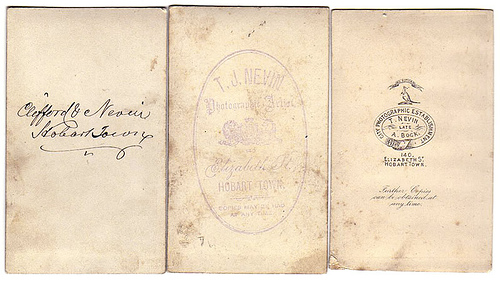 Clifford & Nevin
Hobart Town
T. J. NEVIN
Photographic Artist
Elizabeth St.
HOBART TOWN.
COPIES MAY BE HAD
AT ANY TIME
CITY PHOTOGRAPHIC ESTABLISHMENT
T. NEVIN
LATE
A. BOCK.
140,
ELIZABETH ST
HOBART TOWN.
Further Copies
can be obtained at
any time.